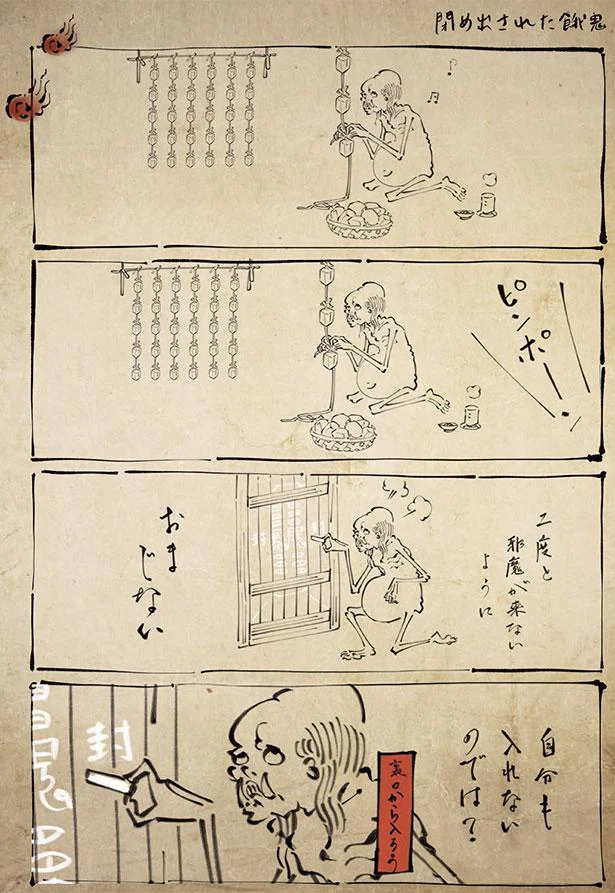 閉め出された餓鬼
ピンポーン
二度と
邪魔が来ない
ように
おま
じない
封
自分も
入れない
のでは？
封
裏口から入ろう